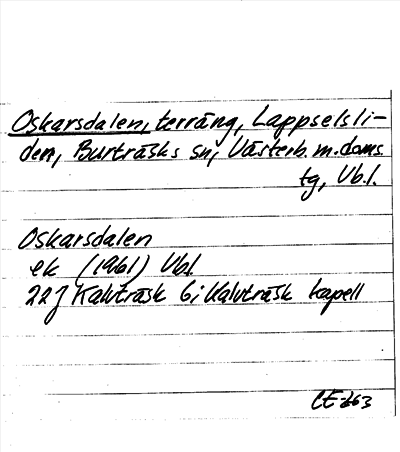 Oskarsdalen, terräng, Lappselsli-
den, Burträsks sn, Västerb. m. doms.
tg, Vb.l.
Oskarsdalen
ek (1961) Vbl.
22J Kalvträsk 6; Kalvträsk kapell